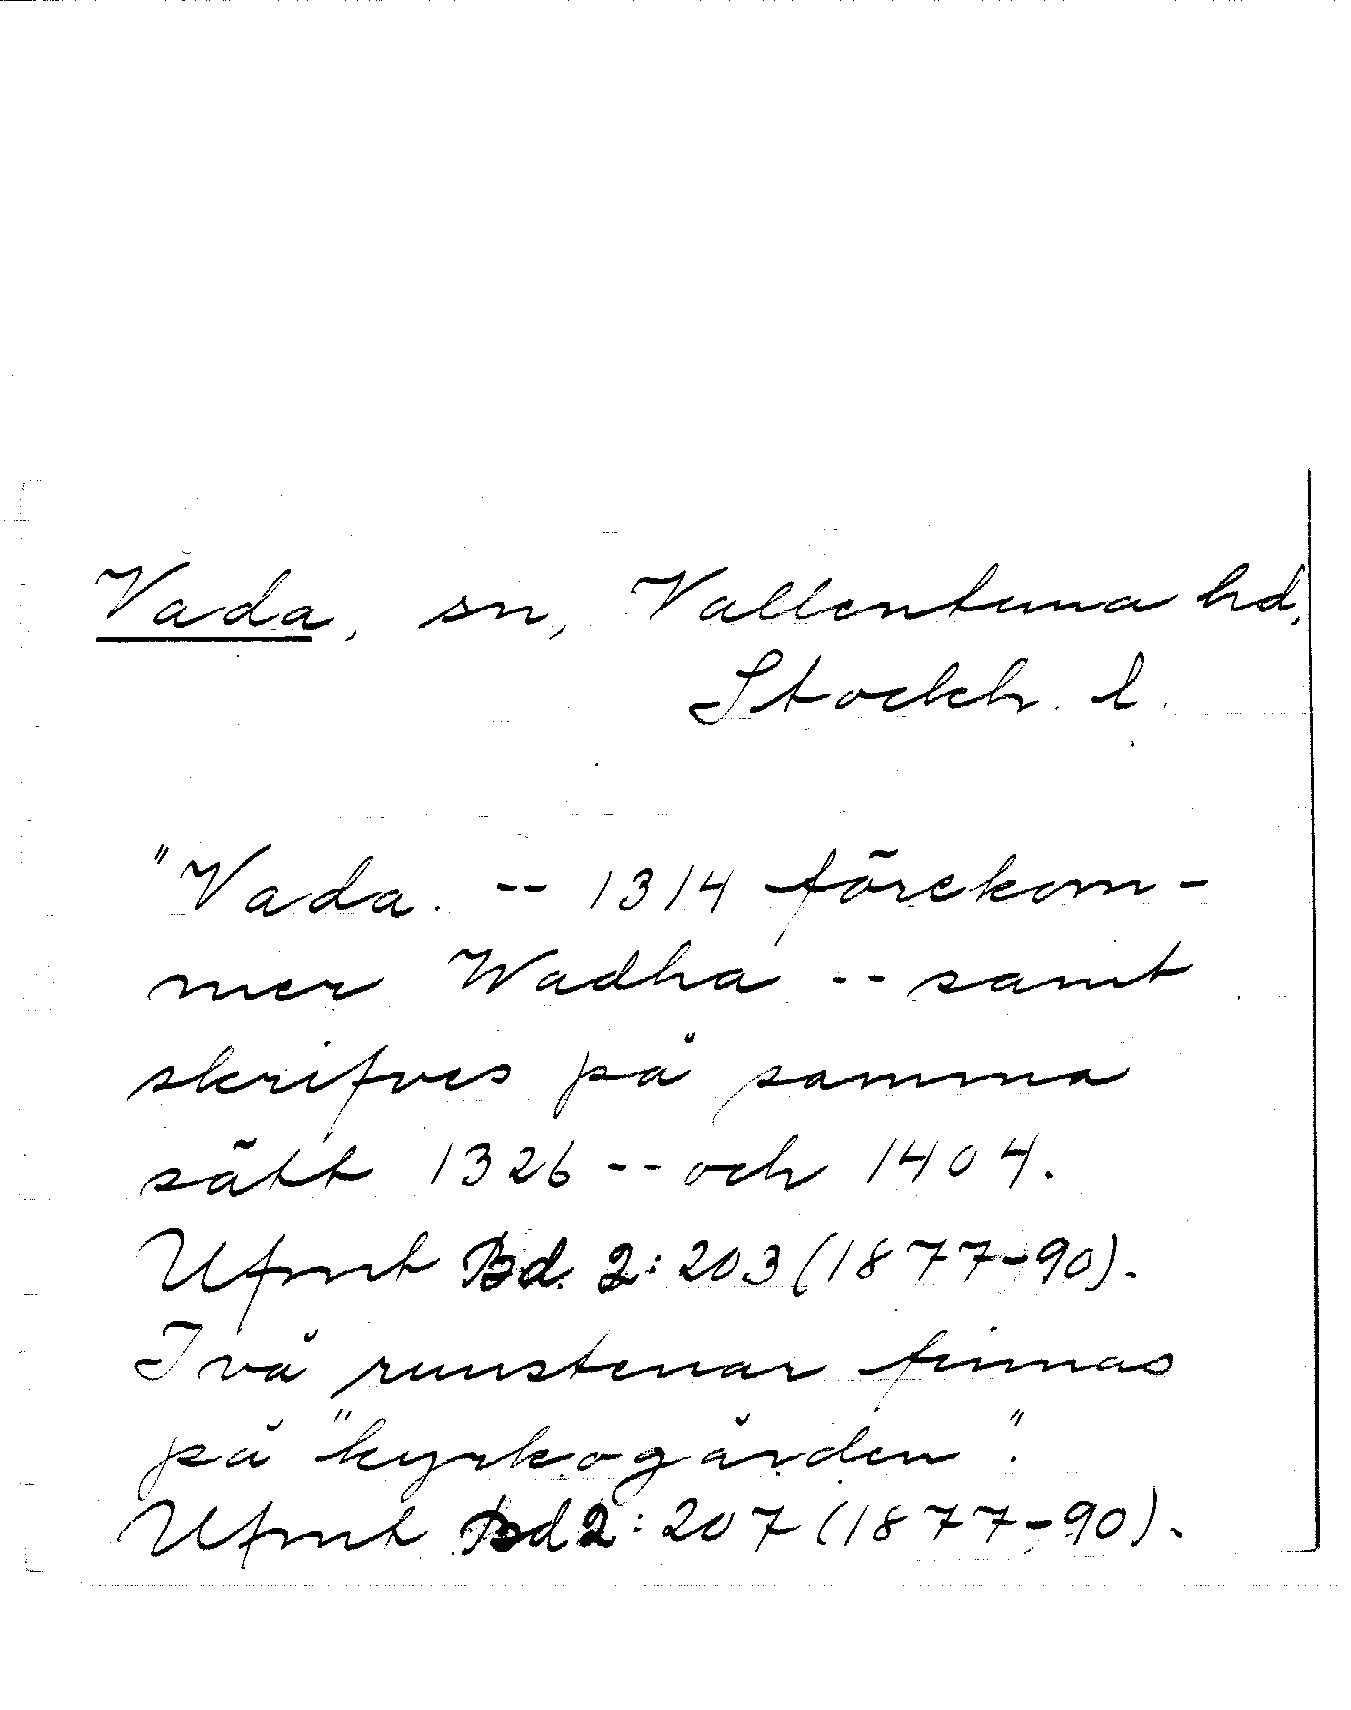 Vada, sn, Vallentuna hd,
Stockh. l.
"Vada. -- 1314 förekom-
mer Wadha -- samt
skrifves på samma
sätt 1326 -- och 1404.
Ufmt Bd. 2: 203 (1877-90).
Två runstenar finnas
på "kyrkogården".
Ufmt Bd 2: 207 (1877-90).